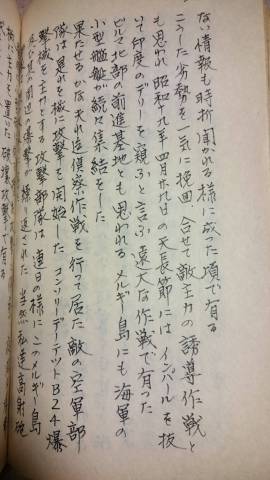 ない情報も時折聞かれる様に成った頃で有る
こうした劣勢を一気に挽回 合せて敵主力の誘導作戦と
も思われ 昭和十九年四月廿九日の天長節には インパールを抜
いて印度のデリーを窺ふと言ふ 遠大な作戦で有った
ビルマ北部の前進基地とも思われる メルギー島にも海軍の
小型艦艇が続々集結をした
果たせるかな夫れ迄偵察作戦を行って居た 敵の空軍部
隊は是れを機に攻撃を開始した コンソリーデーテツトB24爆
撃機を主力とする攻撃部隊は 連日の様に このメルギー島
爆撃が繰返された 当然私達高射砲
に主力を置いた 破爆攻撃で有る